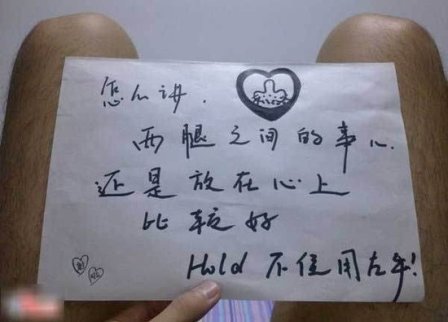 怎么讲,
两腿之间的事
还是放在心上
比较好
Hold 不住用左手!